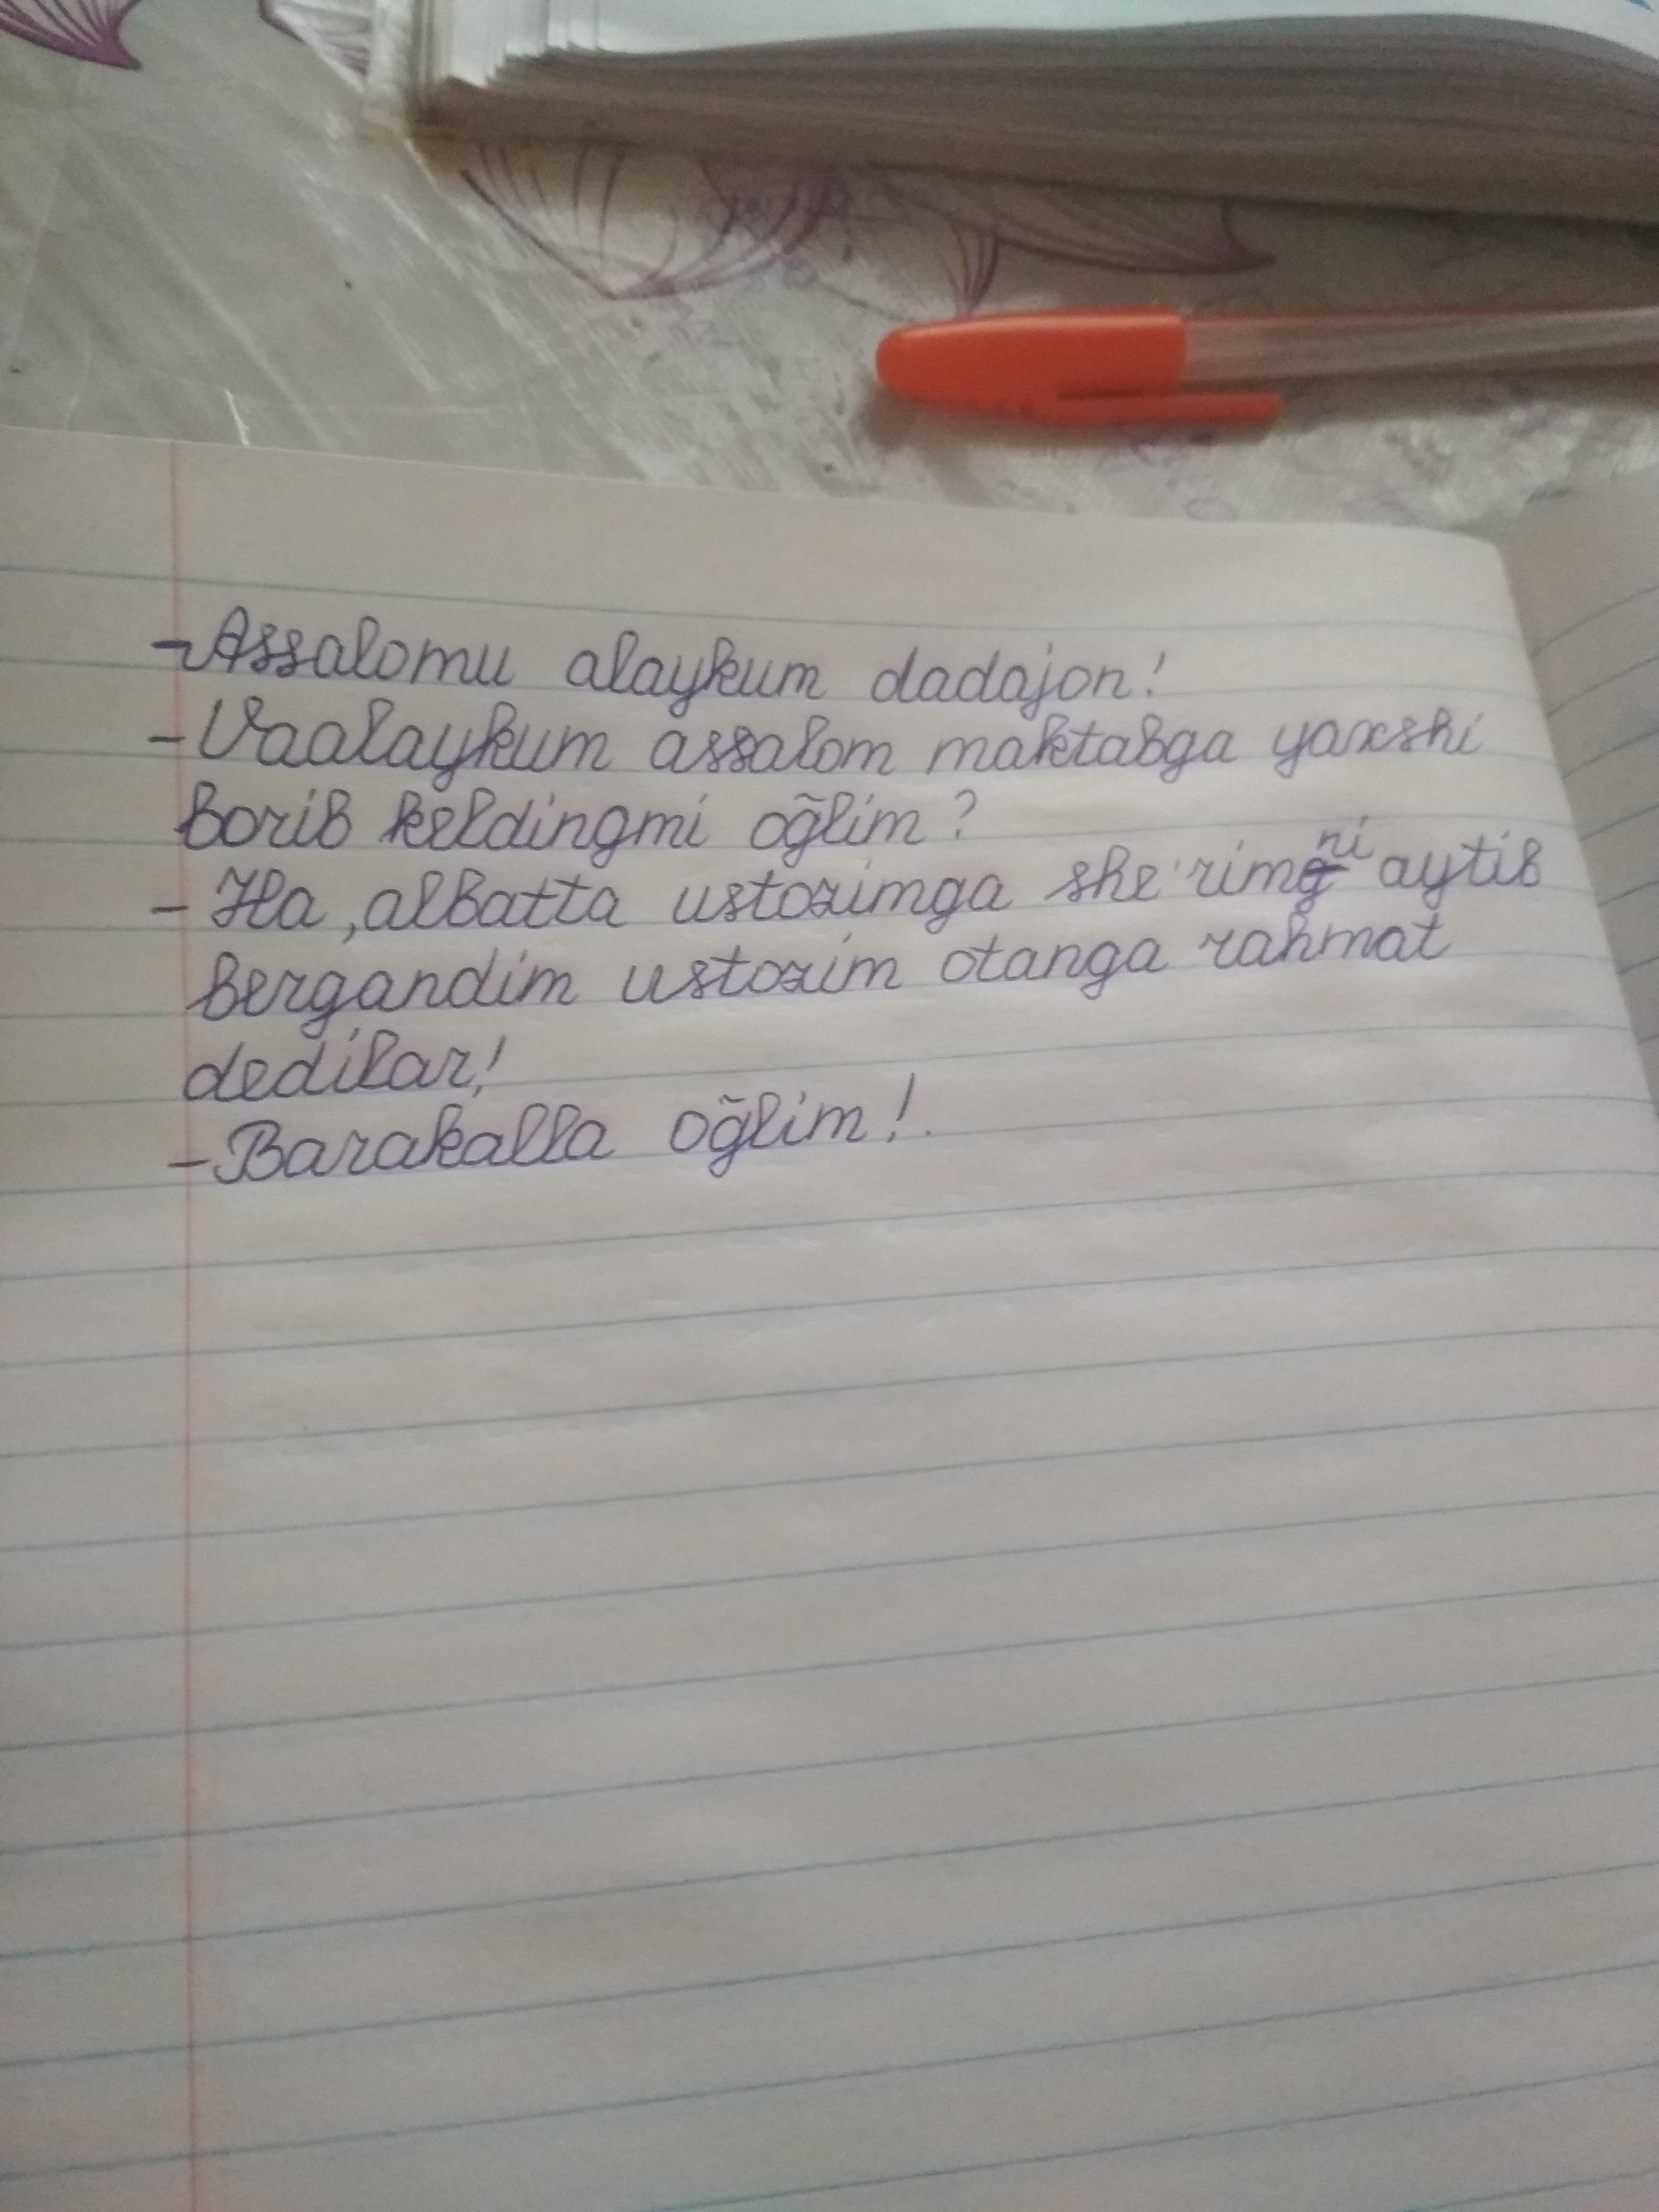 -Assalomu alaykum dadajon!
-Vaalaykum assalom maktabga yaxshi
borib keldingmi õg̃lim?
-Ha, albatta ustozimga she'rimni aytib
bergandim ustozim otanga rahmat
dedilar!
-Barakalla õg̃lim!.